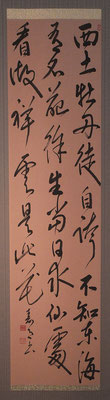 西土牡丹徒自誇不知東海
有名葩徐生當日求仙處
看做祥雲是此花